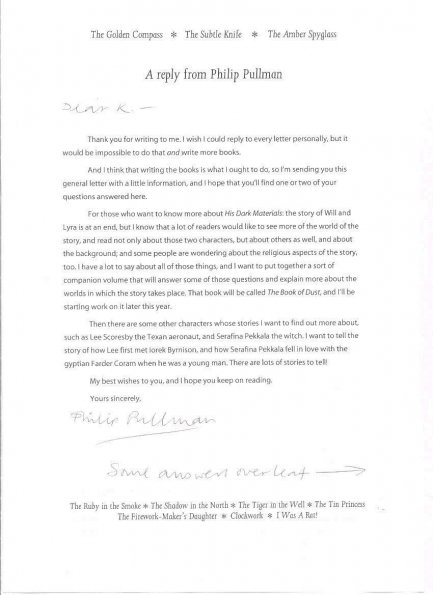 The Golden Compass * The Subtle Knife * The Amber Spyglass
A reply from Philip Pullman
Dear K. —
Thank you for writing to me. I wish I could reply to every letter personally, but it
would be impossible to do that and write more books.
And I think that writing the books is what I ought to do, so I'm sending you this
general letter with a little information, and I hope that you'll find one or two of your
questions answered here.
For those who want to know more about His Dark Materials: the story of Will and
Lyra is at an end, but I know that a lot of readers would like to see more of the world of the
story, and read not only about those two characters, but about others as well, and about
the background; and some people are wondering about the religious aspects of the story,
too. I have a lot to say about all of those things, and I want to put together a sort of
companion volume that will answer some of those questions and explain more about the
worlds in which the story takes place. That book will be called The Book of Dust, and I'll be
starting work on it later this year.
Then there are some other characters whose stories I want to find out more about,
such as Lee Scoresby the Texan aeronaut, and Serafina Pekkala the witch. I want to tell the
story of how Lee first met Iorek Byrnison, and how Serafina Pekkala fell in love with the
gyptian Farder Coram when he was a young man. There are lots of stories to tell!
My best wishes to you, and I hope you keep on reading.
Yours sincerely,
Philip Pullman
Some answers overleaf →
The Ruby in the Smoke * The Shadow in the North * The Tiger in the Well * The Tin Princess
The Firework-Maker's Daughter * Clockwork * I Was A Rat!